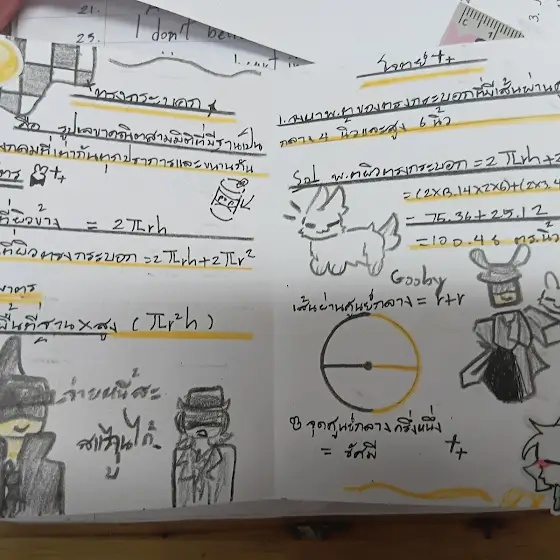 21.
25.
I don't
ทรงกระบอก
คือ รูปเรขาคณิตสามมิติที่มีฐานเป็น
งกลมที่เท่ากันทุกประการและขนานกัน
ตร
ที่ผิวข้าง = 2πrh
ที่ผิวทรงกระบอก = 2πrh + 2πr²
มาตร
พื้นที่ฐาน x สูง (πr²h)
จ่ายหนี้สะ
โจทย์
1. จงหาพ.ทของทรงกระบอกที่มีเส้นผ่านศู
กลาง 4 นิ้วและสูง 6 นิ้ว
Sol พ.ทผิวทรงกระบอก = 2πrh + 2
= (2x3.14x2x6)+(2x3.4
= 75.36 + 25.12
= 100.48 ตร.นิ้ว
Gooby
เส้นผ่านศูนย์กลาง = r+r
จุดศูนย์กลางครึ่งหนึ่ง
= รัศมี